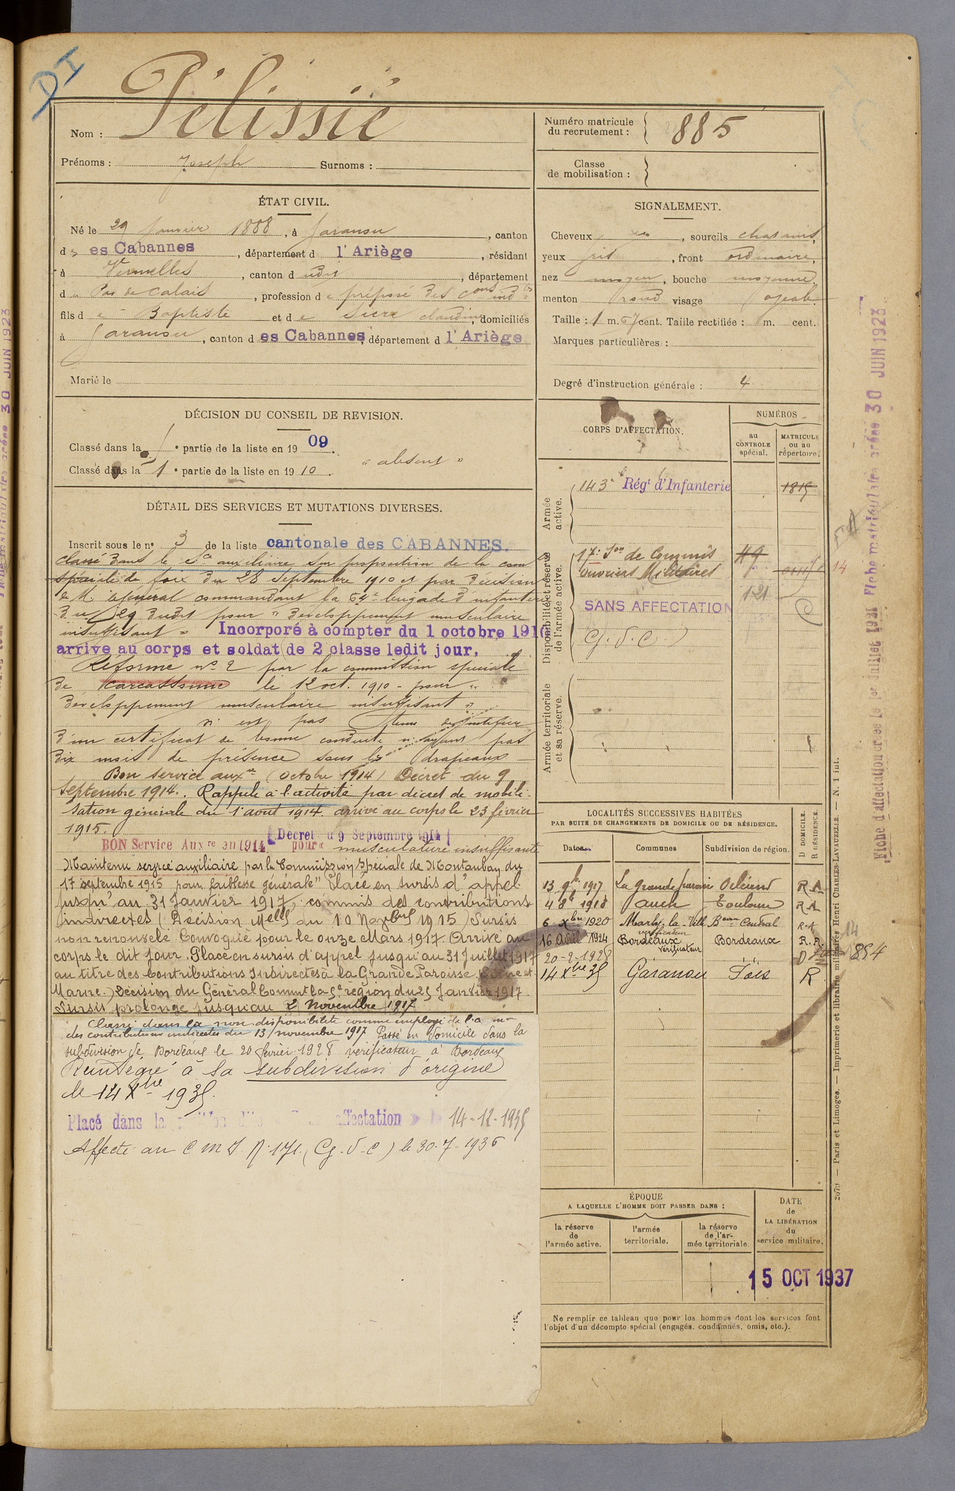 DI
Nom : Pélissié
Prénoms : Joseph Surnoms :
ÉTAT CIVIL.
Né le 29 Janvier 1888, à Garanou, canton
d es Cabannes, département d l'Ariège, résidant
à Vermelles, canton d udit, département
d u Pas de Calais, profession d e préposé des Cons Indtes
fils d e Baptiste et d e Sicre Claudine, domiciliés
à Garanou, canton d es Cabannes, département d l'Ariège
Marié le
DÉCISION DU CONSEIL DE REVISION.
Classé dans la 1e partie de la liste en 1909.
Classé dans la 1e partie de la liste en 1910. "absent"
DÉTAIL DES SERVICES ET MUTATIONS DIVERSES.
Inscrit sous le no 3 de la liste cantonale des CABANNES.
Classé dans le Sce auxiliaire sur proposition de la com
spéciale de Foix du 28 Septembre 1910 et par décision
de M. le général commandant la brigade d'infanterie
du 29 dudit pour "Développement musculaire
insuffisant" Incorporé à compter du 1 octobre 1910
arrivé au corps et soldat de 2 classe ledit jour,
Réformé no 2 par la commission spéciale
de Carcassonne le 12 oct. 1910 - pour "
développement musculaire insuffisant "
n'est pas tenu de justifier
d'un certificat de bonne conduite n'ayant pas
dix mois de présence sous les drapeaux -
Bon service auxre (octobre 1914) Décret du 9
Septembre 1914. Rappelé à l'activité par décret de mobili-
sation générale du 1 août 1914. arrivé au corps le 23 février
1915.
BON Service Auxre en 1914 [Décret du 9 Septembre 1914]
pour musculature insuffisante
Maintenu service auxiliaire par la Commission Spéciale de Montauban du
17 septembre 1915 pour faiblesse générale" Placé en sursis d'appel
jusqu'au 31 Janvier 1917, commis des contributions
indirectes (Décision Melle du 10 Novbre 1915) Sursis
non renouvelé Convoqué pour le onze Mars 1917. Arrivé au
corps le dit jour. Placé en sursis d'appel jusqu'au 31 Juillet 1917
au titre des Contributions Indirectes à la Grande Paroisse (Seine et
Marne) Décision du Général Commt la 5e région du 25 Janvier 1917
Sursis prolongé jusqu'au 2 Novembre 1917
Classé dans la non disponibilité comme employé de l'a
des contributions indirectes du 13 novembre 1917 Passé en domicile dans la
subdivision de Bordeaux le 20 février 1928 vérificateur à Bordeaux
Réintégré à sa subdivision d'origine
le 14 Xbre 1935.
Placé dans la affectation le 14-12-1935
Affecté au C M I No 171 (G.V.C) le 30-7-1936
Numéro matricule
du recrutement : 885
Classe
de mobilisation :
SIGNALEMENT.
Cheveux, sourcils chatains,
yeux gris, front ordinaire,
nez moyen, bouche moyenne,
menton rond visage ovale
Taille : 1 m. 67 cent. Taille rectifiée : m. cent.
Marques particulières :
Degré d'instruction générale : 4
CORPS D'AFFECTATION.
NUMÉROS
au
CONTROLE
spécial.
MATRICULE
ou au
répertoire.
Armée
active.
143e Régt d'Infanterie 1815
Disponibilité et réserve
de l'armée active.
17e Son de Commis
Ouvriers Militaires
SANS AFFECTATION 121
(G.V.C.)
Armée territoriale
et sa réserve.
LOCALITÉS SUCCESSIVES HABITÉES
PAR SUITE DE CHANGEMENTS DE DOMICILE OU DE RÉSIDENCE.
Dates Communes Subdivision de région. D DOMICILE. R RÉSIDENCE.
13 9bre 1917 La Grande paroisse Orléans R.A
1918 Auch Toulouse R.A
6 Xbre 1920 Marly-la-Ville Beau Central R.A
16 1924 Bordeaux vérificateur Bordeaux R.A.
20-2-1928 D
14 Xbre 35 Garanou Foix R
14
854
ÉPOQUE
A LAQUELLE L'HOMME DOIT PASSER DANS :
la réserve
de
l'armée active.
l'armée
territoriale.
la réserve
de l'ar-
mée territoriale.
DATE
de
LA LIBÉRATION
du
service militaire.
15 OCT 1937
Ne remplir ce tableau que pour les hommes dont les services font
l'objet d'un décompte spécial (engagés, condamnés, omis, etc.).
2079 — Paris et Limoges. — Imprimerie et librairie militaires Henri CHARLES-LAVAUZELLE. — N. 1 int.
Fiche d'affectation créée le 1er Juillet 1921 Fiche matriculaire créée 30 JUIN 1923
30 JUIN 1923